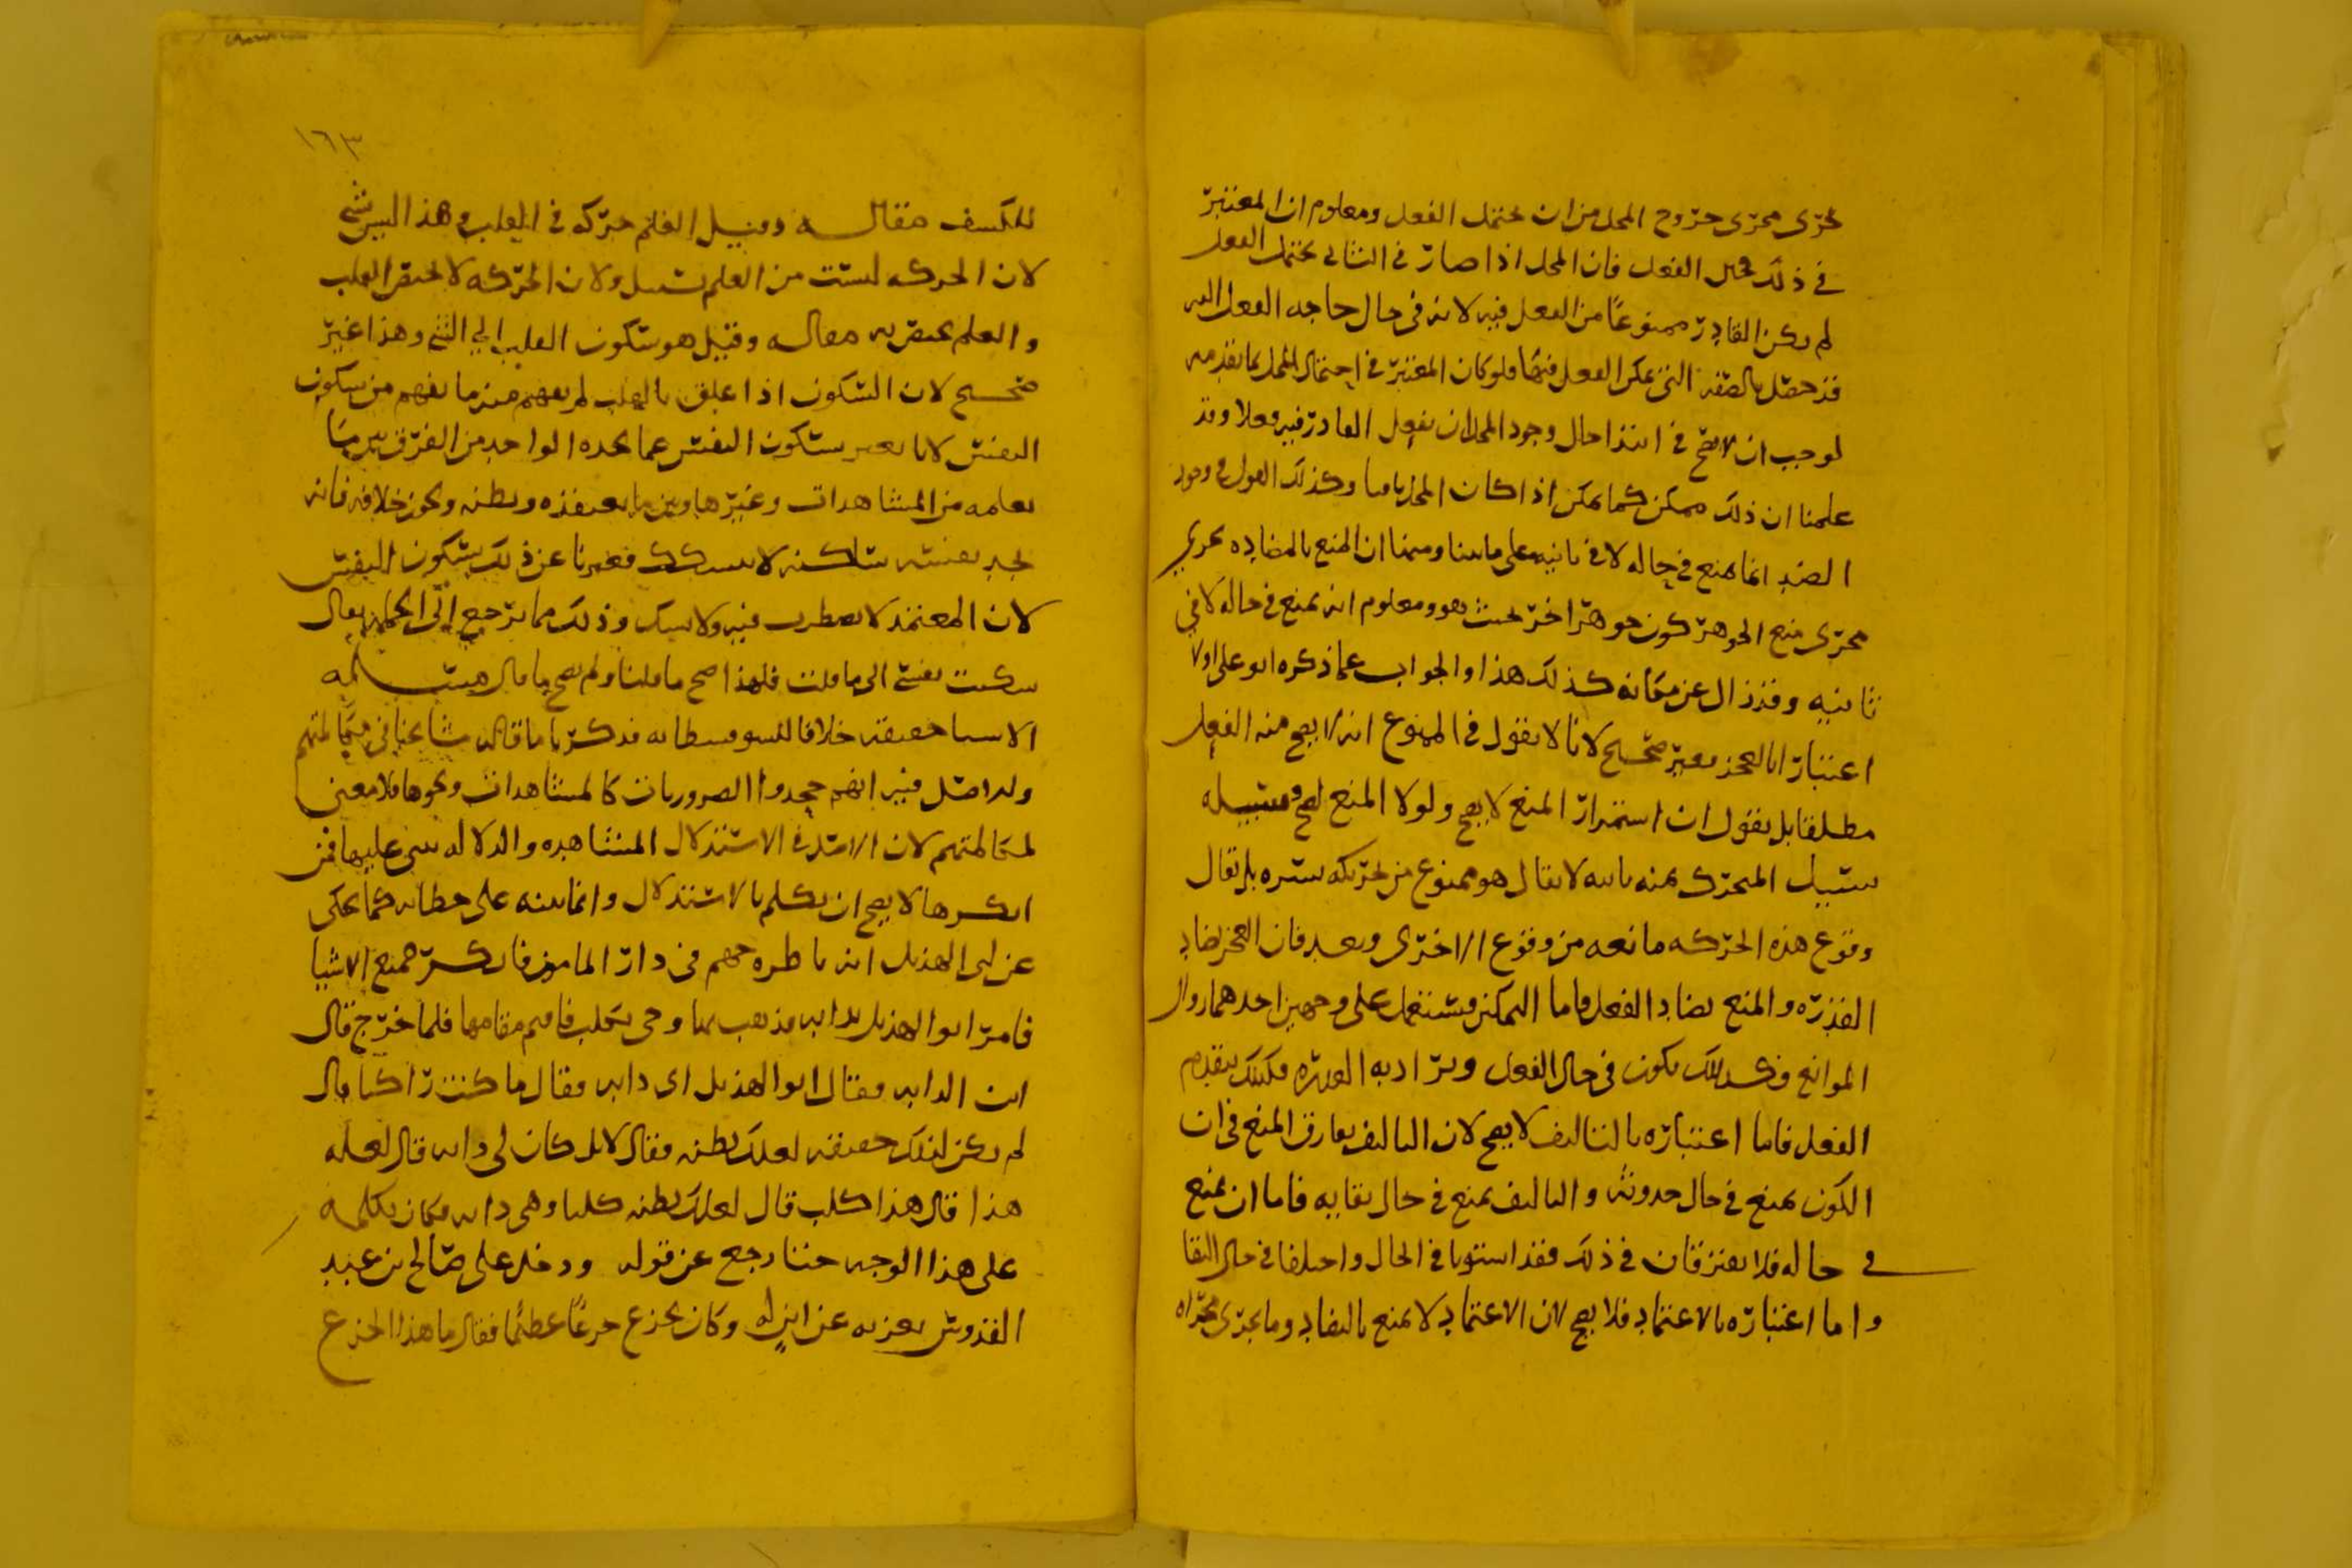 يجرى مجرى خروج المحل من ان يحتمل الفعل ومعلوم ان المعتبر
في ذلك محل الفعل فان المحل اذا صار في الثاني يحتمل الفعل
لم يكن القادر ممنوعًا من الفعل فيه لانه في حال حاجه الفعل اليه
قد حصل بالصفه التي يمكن الفعل فيها فلو كان المعتبر في احتمال المحل بما تقدمه
لوجب ان لا يصح في ابتدا حال وجود المحل ان يفعل القادر فيه فعلا وقد
علمنا ان ذلك ممكن كما يمكن اذا كان المحل باقيا وكذلك القول في وجود
الضد انما يمنع في حاله لا في ثانيه على ما بينا وبينا ان المنع بالمضاده يجري
مجرى منع الجوهر كون جوهر اخر بحيث هو ومعلوم انه يمنع في حاله لا في
ثانيه وقد زال عن مكانه كذلك هذا والجواب عما ذكره ابو علي اولا
اعتبارًا بالعجز فغير صحيح لانا لا نقول في الممنوع انه لا يصح منه الفعل
مطلقا بل نقول ان استمرار المنع لا يصح ولولا المنع لصح وسبيله
سبيل المتحرك يمنه بانه لا يقال هو ممنوع من تحركه يسره بل يقال
وقوع هذه الحركه مانعه من وقوع الاخرى وبعد فان العجز يضاد
القدره والمنع يضاد الفعل واما التمكن فيستعمل على وجهين احدهما زوال
الموانع فكذلك يكون في حال الفعل ويراد به القدره فكذلك يتقدم
الفعل فاما اعتباره بالتاليف لا يصح لان التاليف يفارق المنع في ان
الكون يمنع في حال حدوثه والتاليف يمنع في حال بقايه فاما ان يمنع
في حاله فلا يفترقان في ذلك فقد استويا في الحال واختلفا في حال البقا
واما اعتباره بالاعتماد فلا يصح لان الاعتماد لا يمنع بالتضاد وما يجرى مجراه
١٦٣
للكشف فقال وقيل العلم حركه في القلب وهذا ليس بشي
لان الحركه ليست من العلم بسبيل ولان الحركه لا تختص القلب
والعلم يختص به فقال وقيل هو سكون القلب الى الشي وهذا غير
صحيح لان السكون اذا علق بالقلب لم يفهم منه ما يفهم من سكون
النفس لانا نعبر بسكون النفس عما يجده الواحد من الفرق بين ما
يعلمه من المشاهدات وغيرها وبين ما يعتقده ويظنه ويجوز خلافه فانه
يجد نفسه ساكنه لا يتشكك فعبرنا عن ذلك بسكون النفس
لان المعتقد لا يضطرب فيه ولا يشك وذلك مما يرجع الى الجمله يقال
سكنت نفسي الى ما قلت فلهذا صح ما قلنا ولم يصح ما قال مسله
الاشيا حقيقه خلافا للسوفسطائيه فذكر ما قاله مشايخنا في مكالمتهم
والاصل فيه انهم جحدوا الضروريات كالمشاهدات ونحوها فلا معنى
لمكالمتهم لان الاصل في الاستدلال المشاهده والدلاله تبنى عليها فمن
انكرها لا يصح ان يكلم بالاستدلال وانما ينبه على خطائه كما يحكى
عن ابي الهذيل انه ناظره جهم في دار المامون فانكر جميع الاشيا
فامر ابو الهذيل بدابه فذهب بها وجى بكلب فاقيم مقامها فلما خرج قال
اين الدابه فقال ابو الهذيل اي دابه فقال ما كنت راكبا قال
لم يكن لذلك حقيقه لعلك تظنه فقال لا بل كان لي دابه قال لعله
هذا قال هذا كلب قال لعلك تظنه كلبا وهي دابه فكان يكلمه
على هذا الوجه حتى رجع عن قوله ودخل على صالح بن عبد
القدوس يعزيه عن ابن له وكان يجزع جزعًا عظيمًا فقال ما هذا الجزع